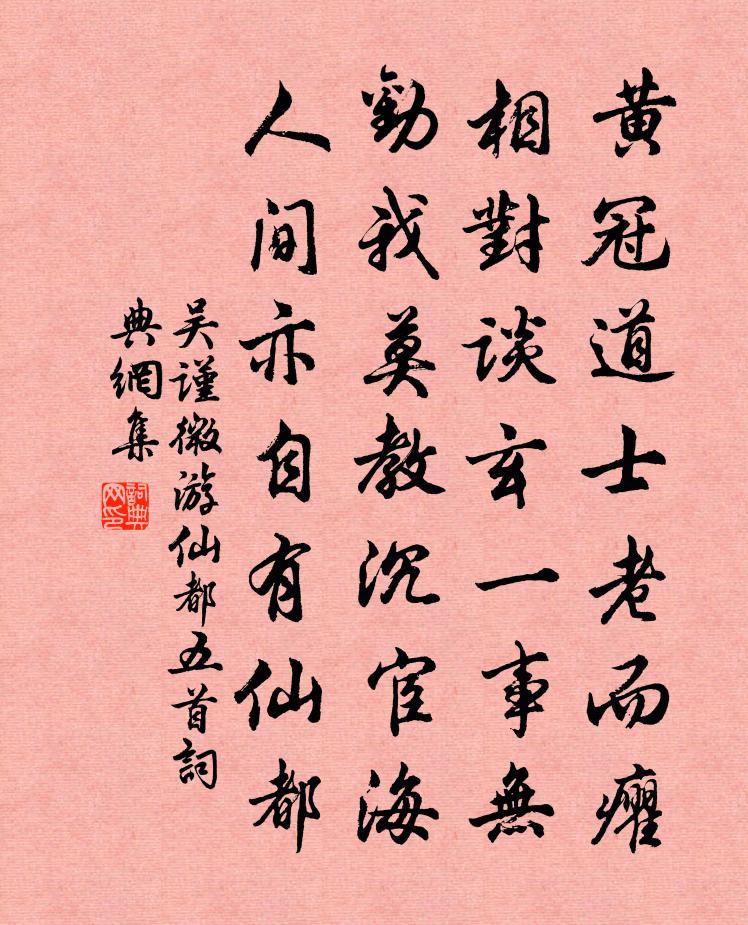 黄冠道士老而癯
相對談玄一事無
勸我莫教沉宦海
人间亦自有仙都
吴謹微游仙都五首詞
典網集
詞典
网印